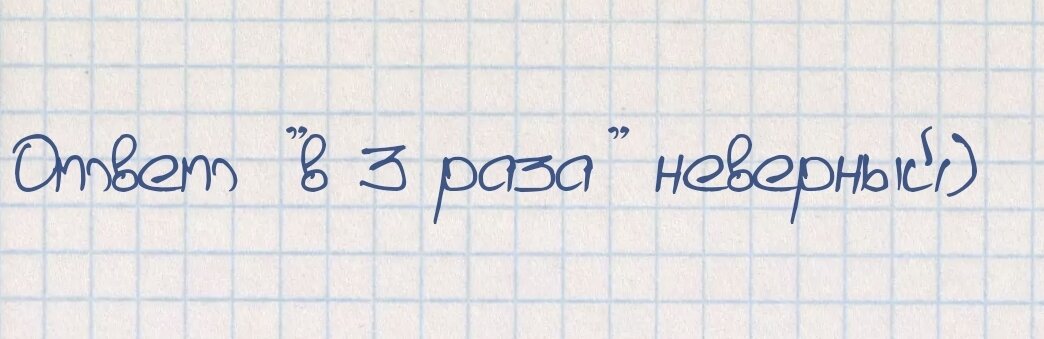 Ответ "в 3 раза" неверный)